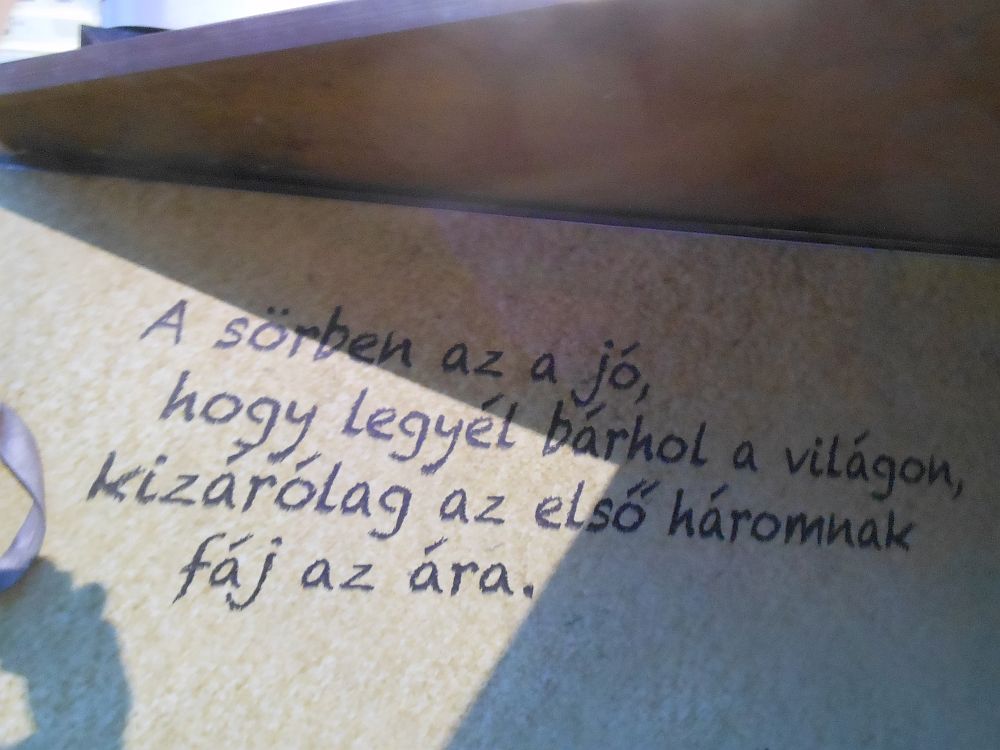 A sörben az a jó,
hogy legyél bárhol a világon,
kizárólag az első háromnak
fáj az ára.